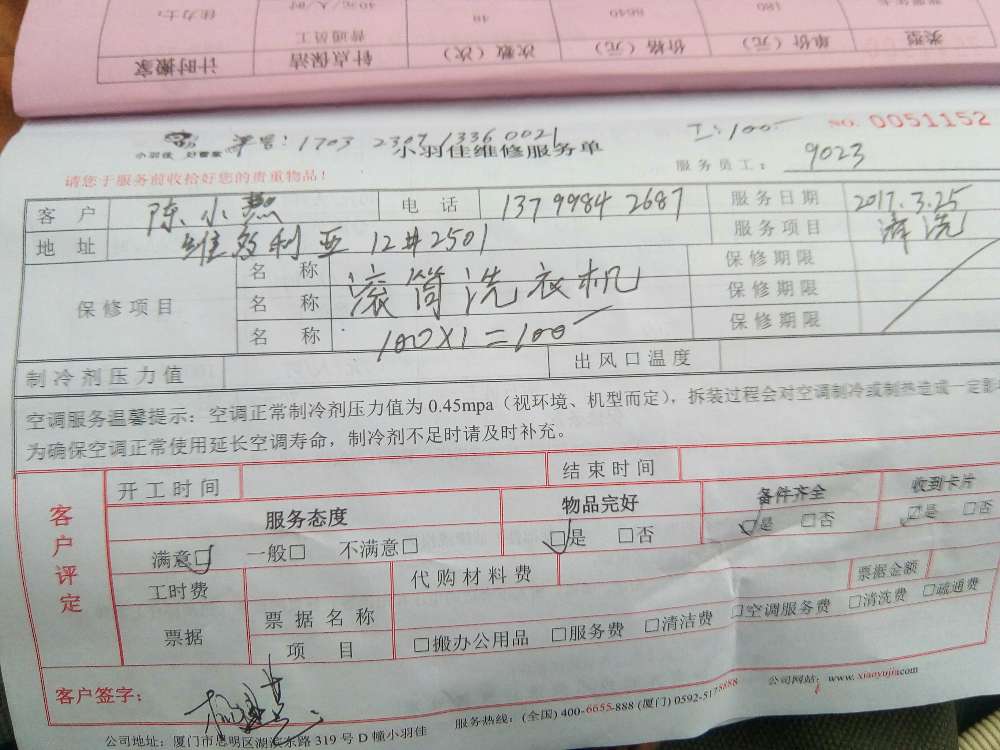 计时搬家 针点保洁 次数（次） 价格（元） 单价（元） 类型
普通员工
佳力士: 40元/人/时 48 6640 180
单号: 1703 2307 1336 0021 工:100- NO. 0051152
小羽佳 好管家 小羽佳维修服务单 服务员工: 9023
请您于服务前收拾好您的贵重物品!
客户 陈小燕 电话 137 99984 2687 服务日期 2017.3.25
地址 维多利亚 12#2501 服务项目 清洗
保修项目 名称 滚筒洗衣机 保修期限
名称 保修期限
名称 100X1=100- 保修期限
制冷剂压力值 出风口温度
空调服务温馨提示: 空调正常制冷剂压力值为 0.45mpa（视环境、机型而定），拆装过程会对空调制冷或制热造成一定影
为确保空调正常使用延长空调寿命，制冷剂不足时请及时补充。
客户评定
开工时间 结束时间
服务态度 物品完好 备件齐全 收到卡片
满意□ 一般□ 不满意□ □是 □否 □是 □否 □是 □否
工时费 代购材料费 票据金额
票据 票据名称
项目 □搬办公用品 □服务费 □清洁费 □空调服务费 □清洗费 □疏通费
客户签字:
公司地址: 厦门市思明区湖滨东路 319 号 D 幢小羽佳 服务热线: (全国) 400-6655-888 (厦门) 0592-5175888 公司网站: www. xiaoyujia.com